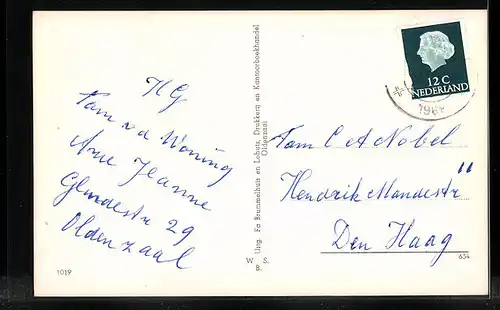 HG
Fam v d Woning
Arne Jeanne
Glindestr 29
Oldenzaal
1019
Uitg. Fa Brummelhuis en Lobato, Drukkerij en Kantoorboekhandel
Oldenzaal
W S.
12 C
NEDERLAND
196
Fam C A Nobel
Hendrik Mandestr "
Den Haag
654